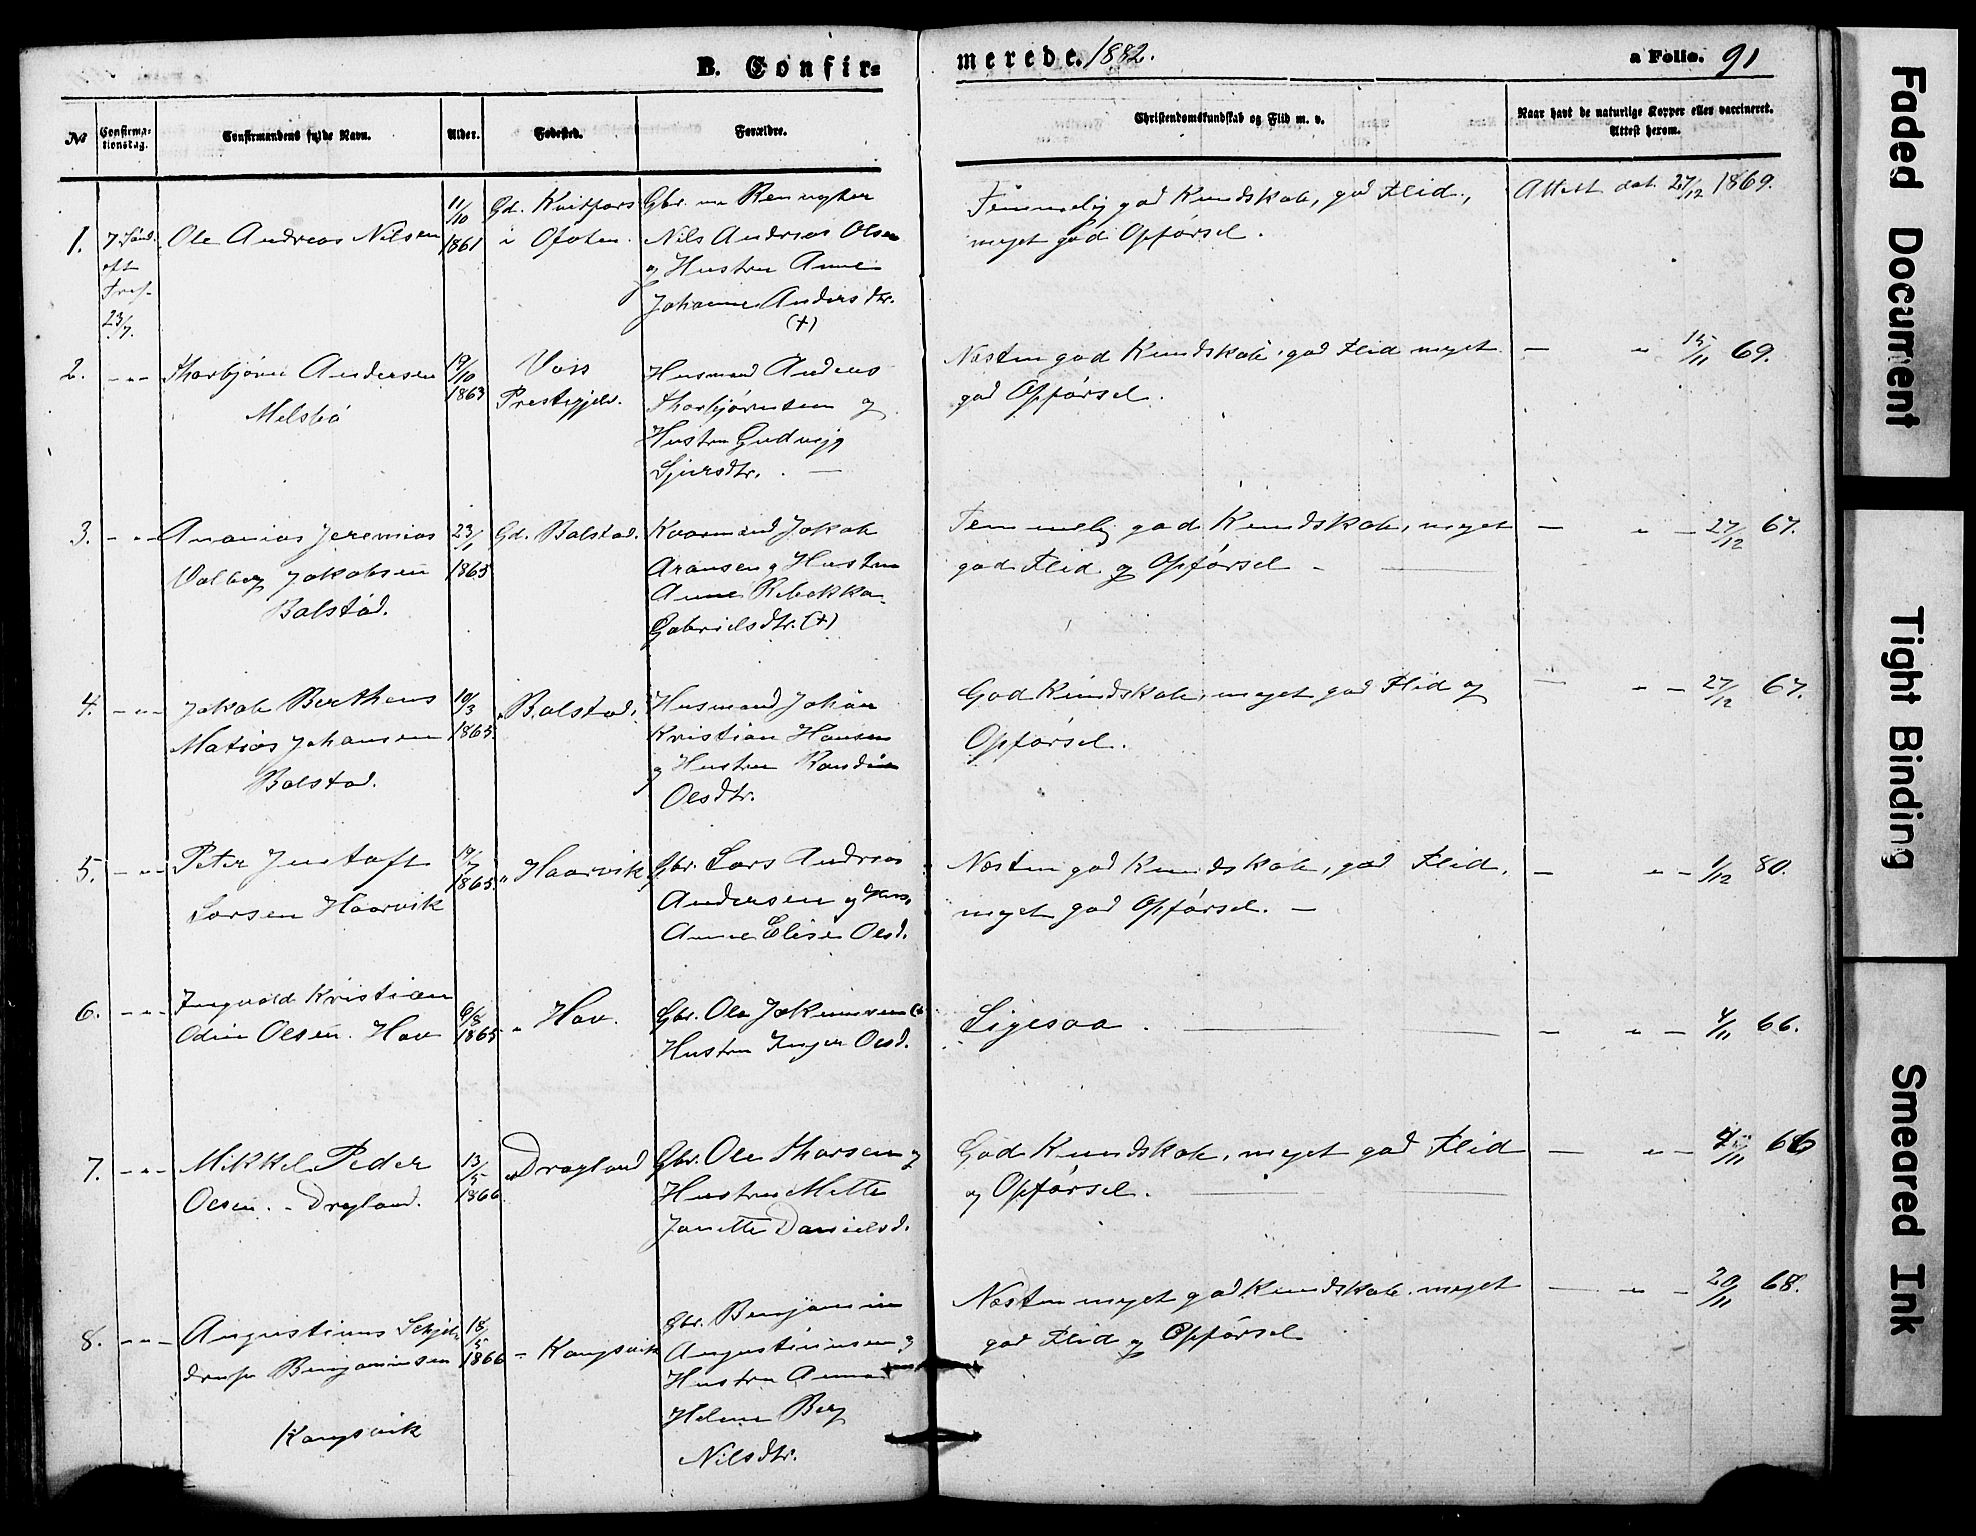 B. Confir=
merede. 1882.
a Folio. 91
No
Confirma-
tionsdag.
Confirmandens fulde Navn.
Alder.
Fødested.
Forældre.
Christendomskundskab og Flid m. v.
Naar havt de naturlige Kopper eller vaccineret.
Attest herom.
1.
7 Sønd.
eft
Tref.
23/7.
Ole Andreas Nilsen
11/10
1861
Gd.
i Ofoten.
Gbr.
Nils Andreas Olsen
og Hustru Anne
Johanne Andersdtr.
(+)
Temmelig god Kundskab, god Flid,
meget god Opførsel.
Attest dat. 27/12 1869.
2.
- " -
Thorbjørn Andersen
Melsbø
19/10
1863
Voss
Prestegjeld.
Husmand Anders
Thorbjørnsen og
Hustru Gudveig
Sjursdtr. -
Næsten god Kundskab, god Flid meget
god Opførsel.
- " 15/11 69.
3.
- " -
Ananias Jeremias
Valberg Jakobsen
Balstad.
23/1
1865
Gd. Balstad.
Kaarmand Jakob
Aronsen og Hustru
Anne Rebekka
Gabrielsdtr. (+)
Temmelig god Kundskab, meget
god Flid og Opførsel -
- " - 27/12 67.
4.
- " -
Jakob Berthens
Matias Johansen
Balstad.
10/3
1865
" Balstad.
Husmand Johan
Kristian Hansen
og Hustru Randine
Olsdtr.
God Kundskab, meget god Flid og
Opførsel.
- " - 27/12 67.
5.
- " -
Peter Justoft
Larsen Haarvik
1865.
" Haarvik
Gbr. Lars Andreas
Andersen og Hustru
Anne Elise Olsd.
Næsten god Kundskab, god Flid,
meget god Opførsel. -
- " - 1/12 80.
6.
- " -
Ingvald Kristian
Odin Olsen. Hov
6/8
1865
" Hov.
Gbr. Ole Jakimsen &
Hustru Inger Olsd.
Ligesaa.
- " - 4/11 66.
7.
- " -
Mikkel Peder
Olsen. - Drogland.
13/5
1866.
" Drogland
Gbr. Ole Thorsen og
Hustru Mette
Janette Danielsd.
God Kundskab, meget god Flid
og Opførsel.
- " - 4/11 66
8.
- " -
Augustinus Schjel-
drup Benjaminsen
Kongsvik
18/5
1866
" Kongsvik
Gbr. Benjamin
Augustinusen og
Hustru Anna
Helene Berg
Nilsdtr.
Næsten meget god Kundskab meget
god Flid og Opførsel
- " - 20/11 68.
Faded Document
Tight Binding
Smeared Ink